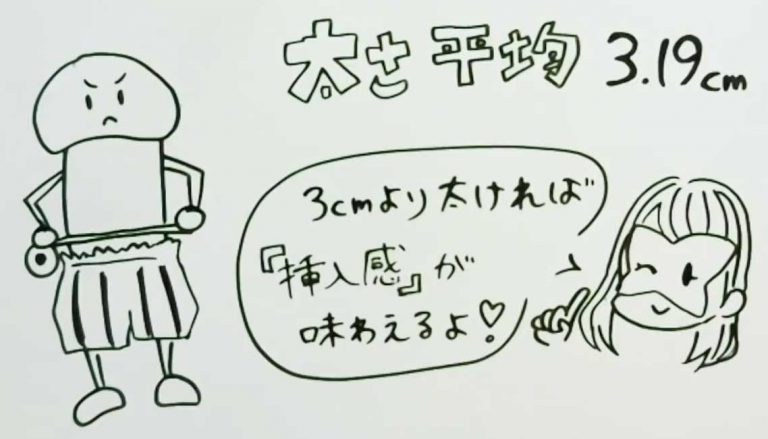 太さ平均 3.19cm
3cmより太ければ
『挿入感』が
味わえるよ♡